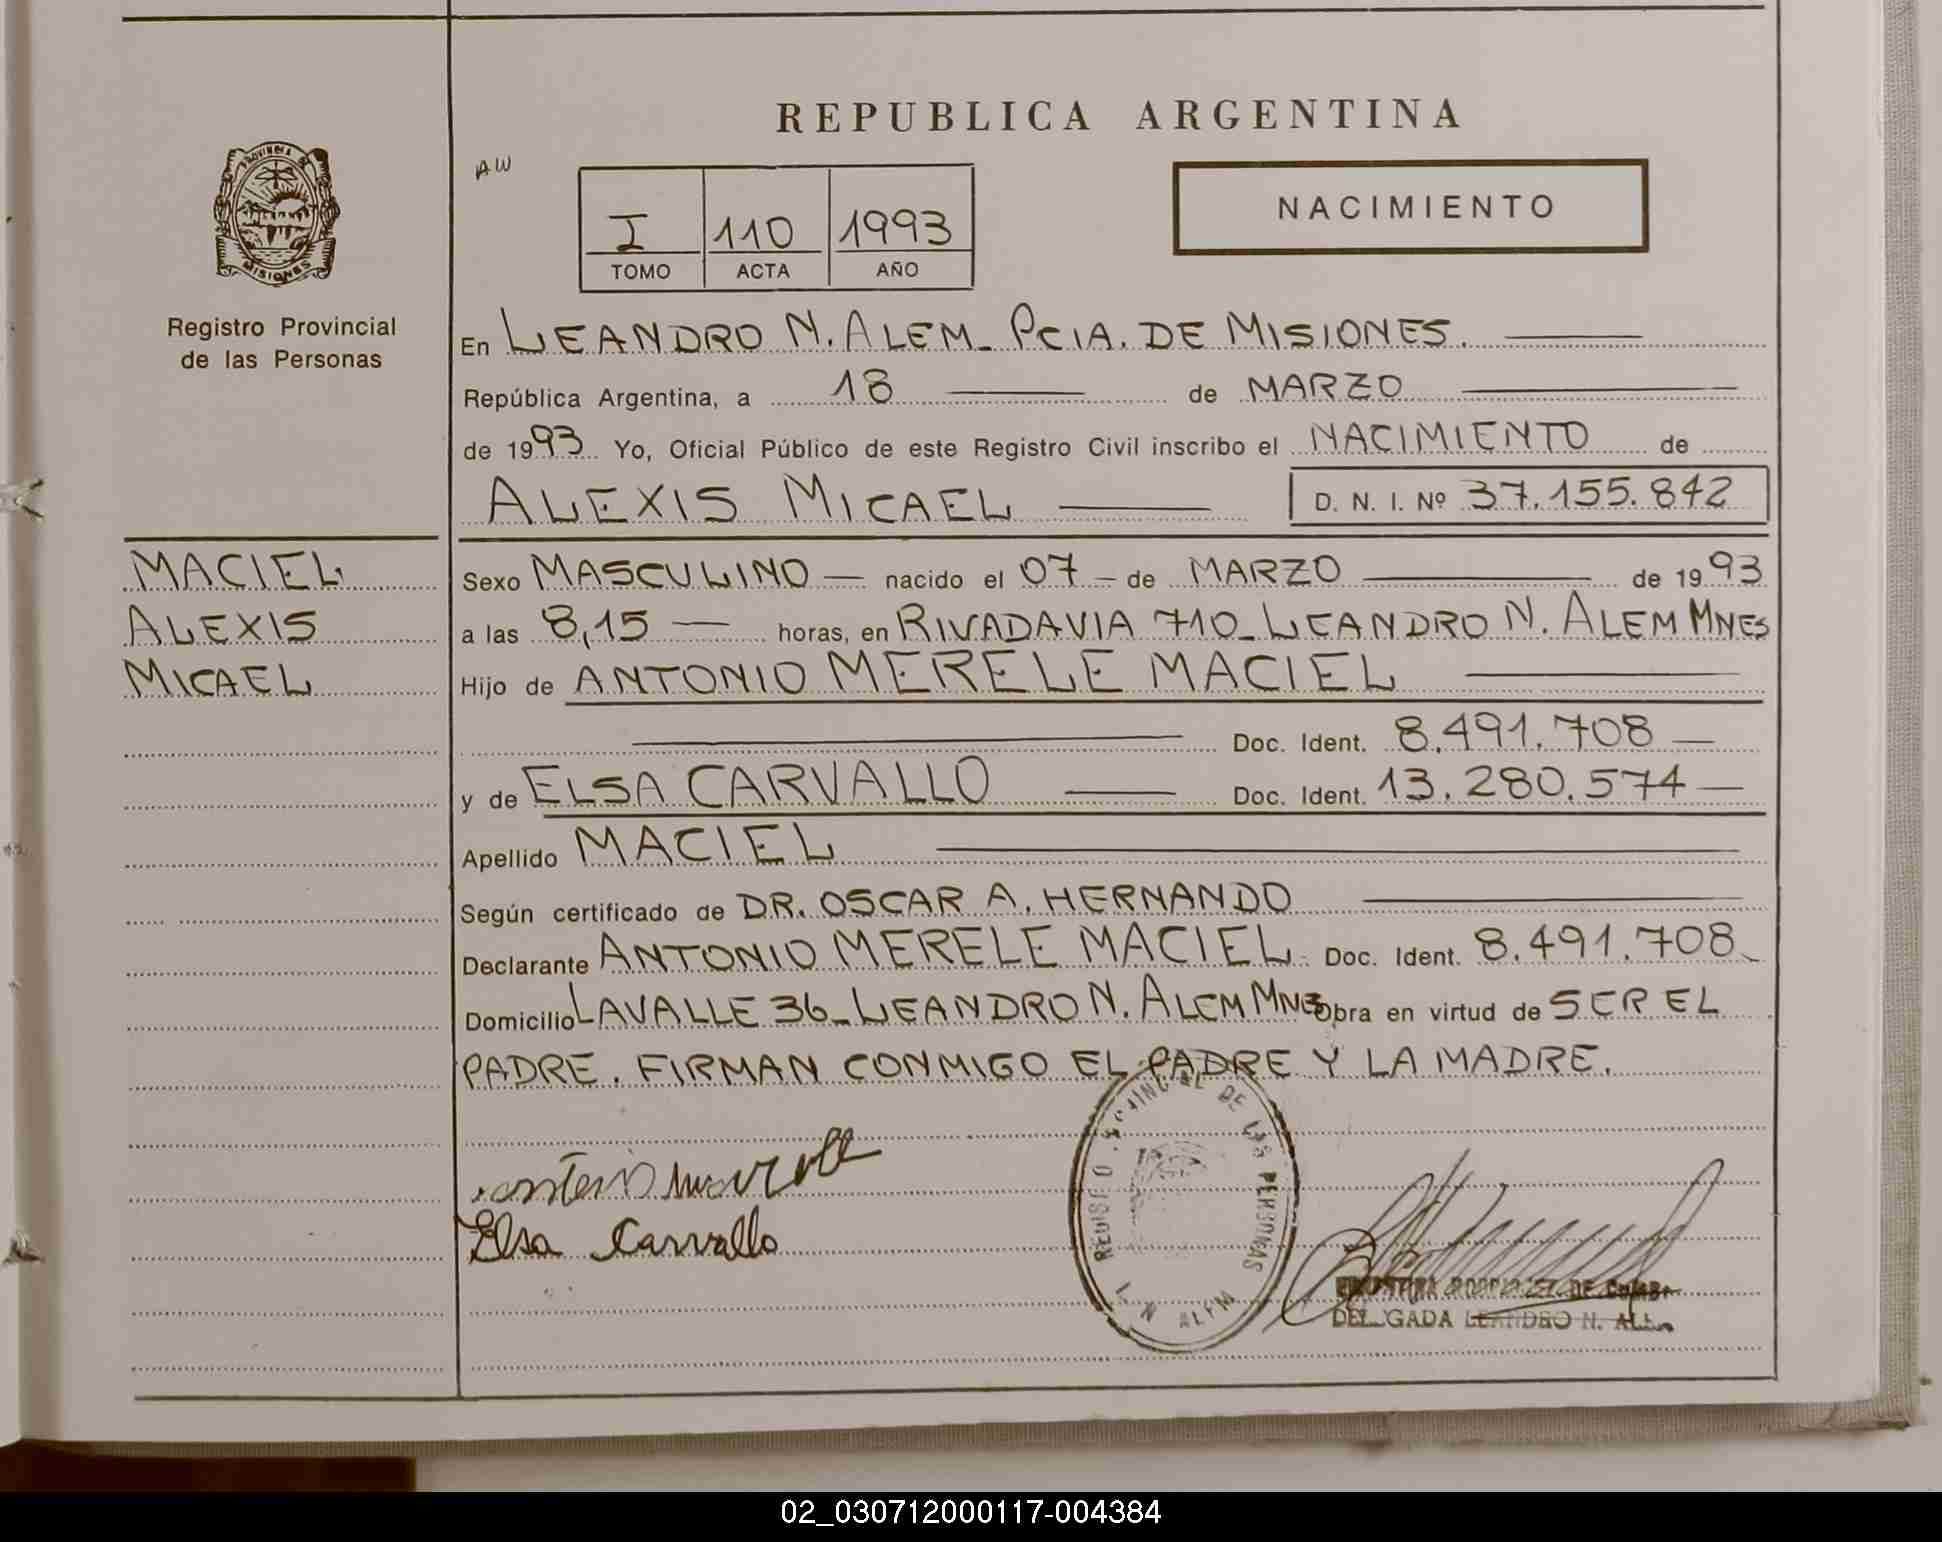 REPUBLICA ARGENTINA
AW
I 110 1993
TOMO ACTA AÑO
NACIMIENTO
PROVINCIA DE
MISIONES
Registro Provincial
de las Personas
En LEANDRO N. ALEM_ PCIA. DE MISIONES.
República Argentina, a 18 de MARZO
de 1993 Yo, Oficial Público de este Registro Civil inscribo el NACIMIENTO de
ALEXIS MICAEL D. N. I. Nº 37.155.842
MACIEL
ALEXIS
MICAEL
Sexo MASCULINO — nacido el 07 – de MARZO de 1993
a las 8,15 — horas, en RIVADAVIA 710_ LEANDRO N. ALEM MNES
Hijo de ANTONIO MERELE MACIEL
Doc. Ident. 8.491.708 —
y de ELSA CARVALLO — Doc. Ident. 13.280.574 —
Apellido MACIEL
Según certificado de DR. OSCAR A. HERNANDO
Declarante ANTONIO MERELE MACIEL. Doc. Ident. 8.491.708_
Domicilio LAVALLE 36_ LEANDRO N. ALEM MNES Obra en virtud de SER EL
PADRE. FIRMAN CONMIGO EL PADRE Y LA MADRE.
REGISTRO PROVINCIAL DE LAS PERSONAS
L. N. ALEM
Elsa Carvallo
DELEGADA LEANDRO N. ALEM
02_030712000117-004384